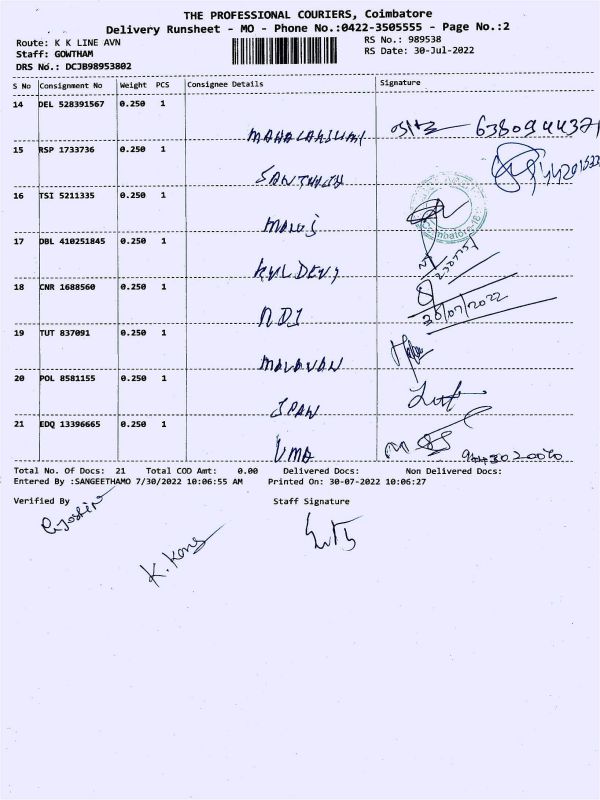 THE PROFESSIONAL COURIERS, Coimbatore
Delivery Runsheet - MO - Phone No.:0422-3505555 - Page No.:2
Route: K K LINE AVN RS No.: 989538
Staff: GOWTHAM RS Date: 30-Jul-2022
DRS No.: DCJB98953802
S No Consignment No Weight PCS Consignee Details Signature
14 DEL 528391567 0.250 1
MAHALAKSHMI
15 RSP 1733736 0.250 1
SANTHOSH
16 TSI 5211335 0.250 1
Coimbatore
MANOJ
17 DBL 410251845 0.250 1
KULDEVI
18 CNR 1688560 0.250 1
28/07/2022
19 TUT 837091 0.250 1
MALAVAN
20 POL 8581155 0.250 1
SPAN
21 EDQ 13396665 0.250 1
UMA
Total No. Of Docs: 21 Total COD Amt: 0.00 Delivered Docs: Non Delivered Docs:
Entered By :SANGEETHAMO 7/30/2022 10:06:55 AM Printed On: 30-07-2022 10:06:27
Verified By Staff Signature